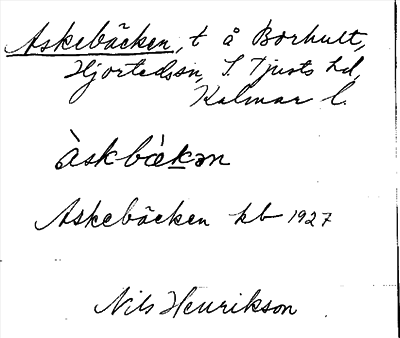 Askebäcken, t å Borhult,
Hjorteds sn, S. Tjusts hd,
Kalmar l.
àskbὰkən
Askebäcken kb 1927
Nils Henrikson